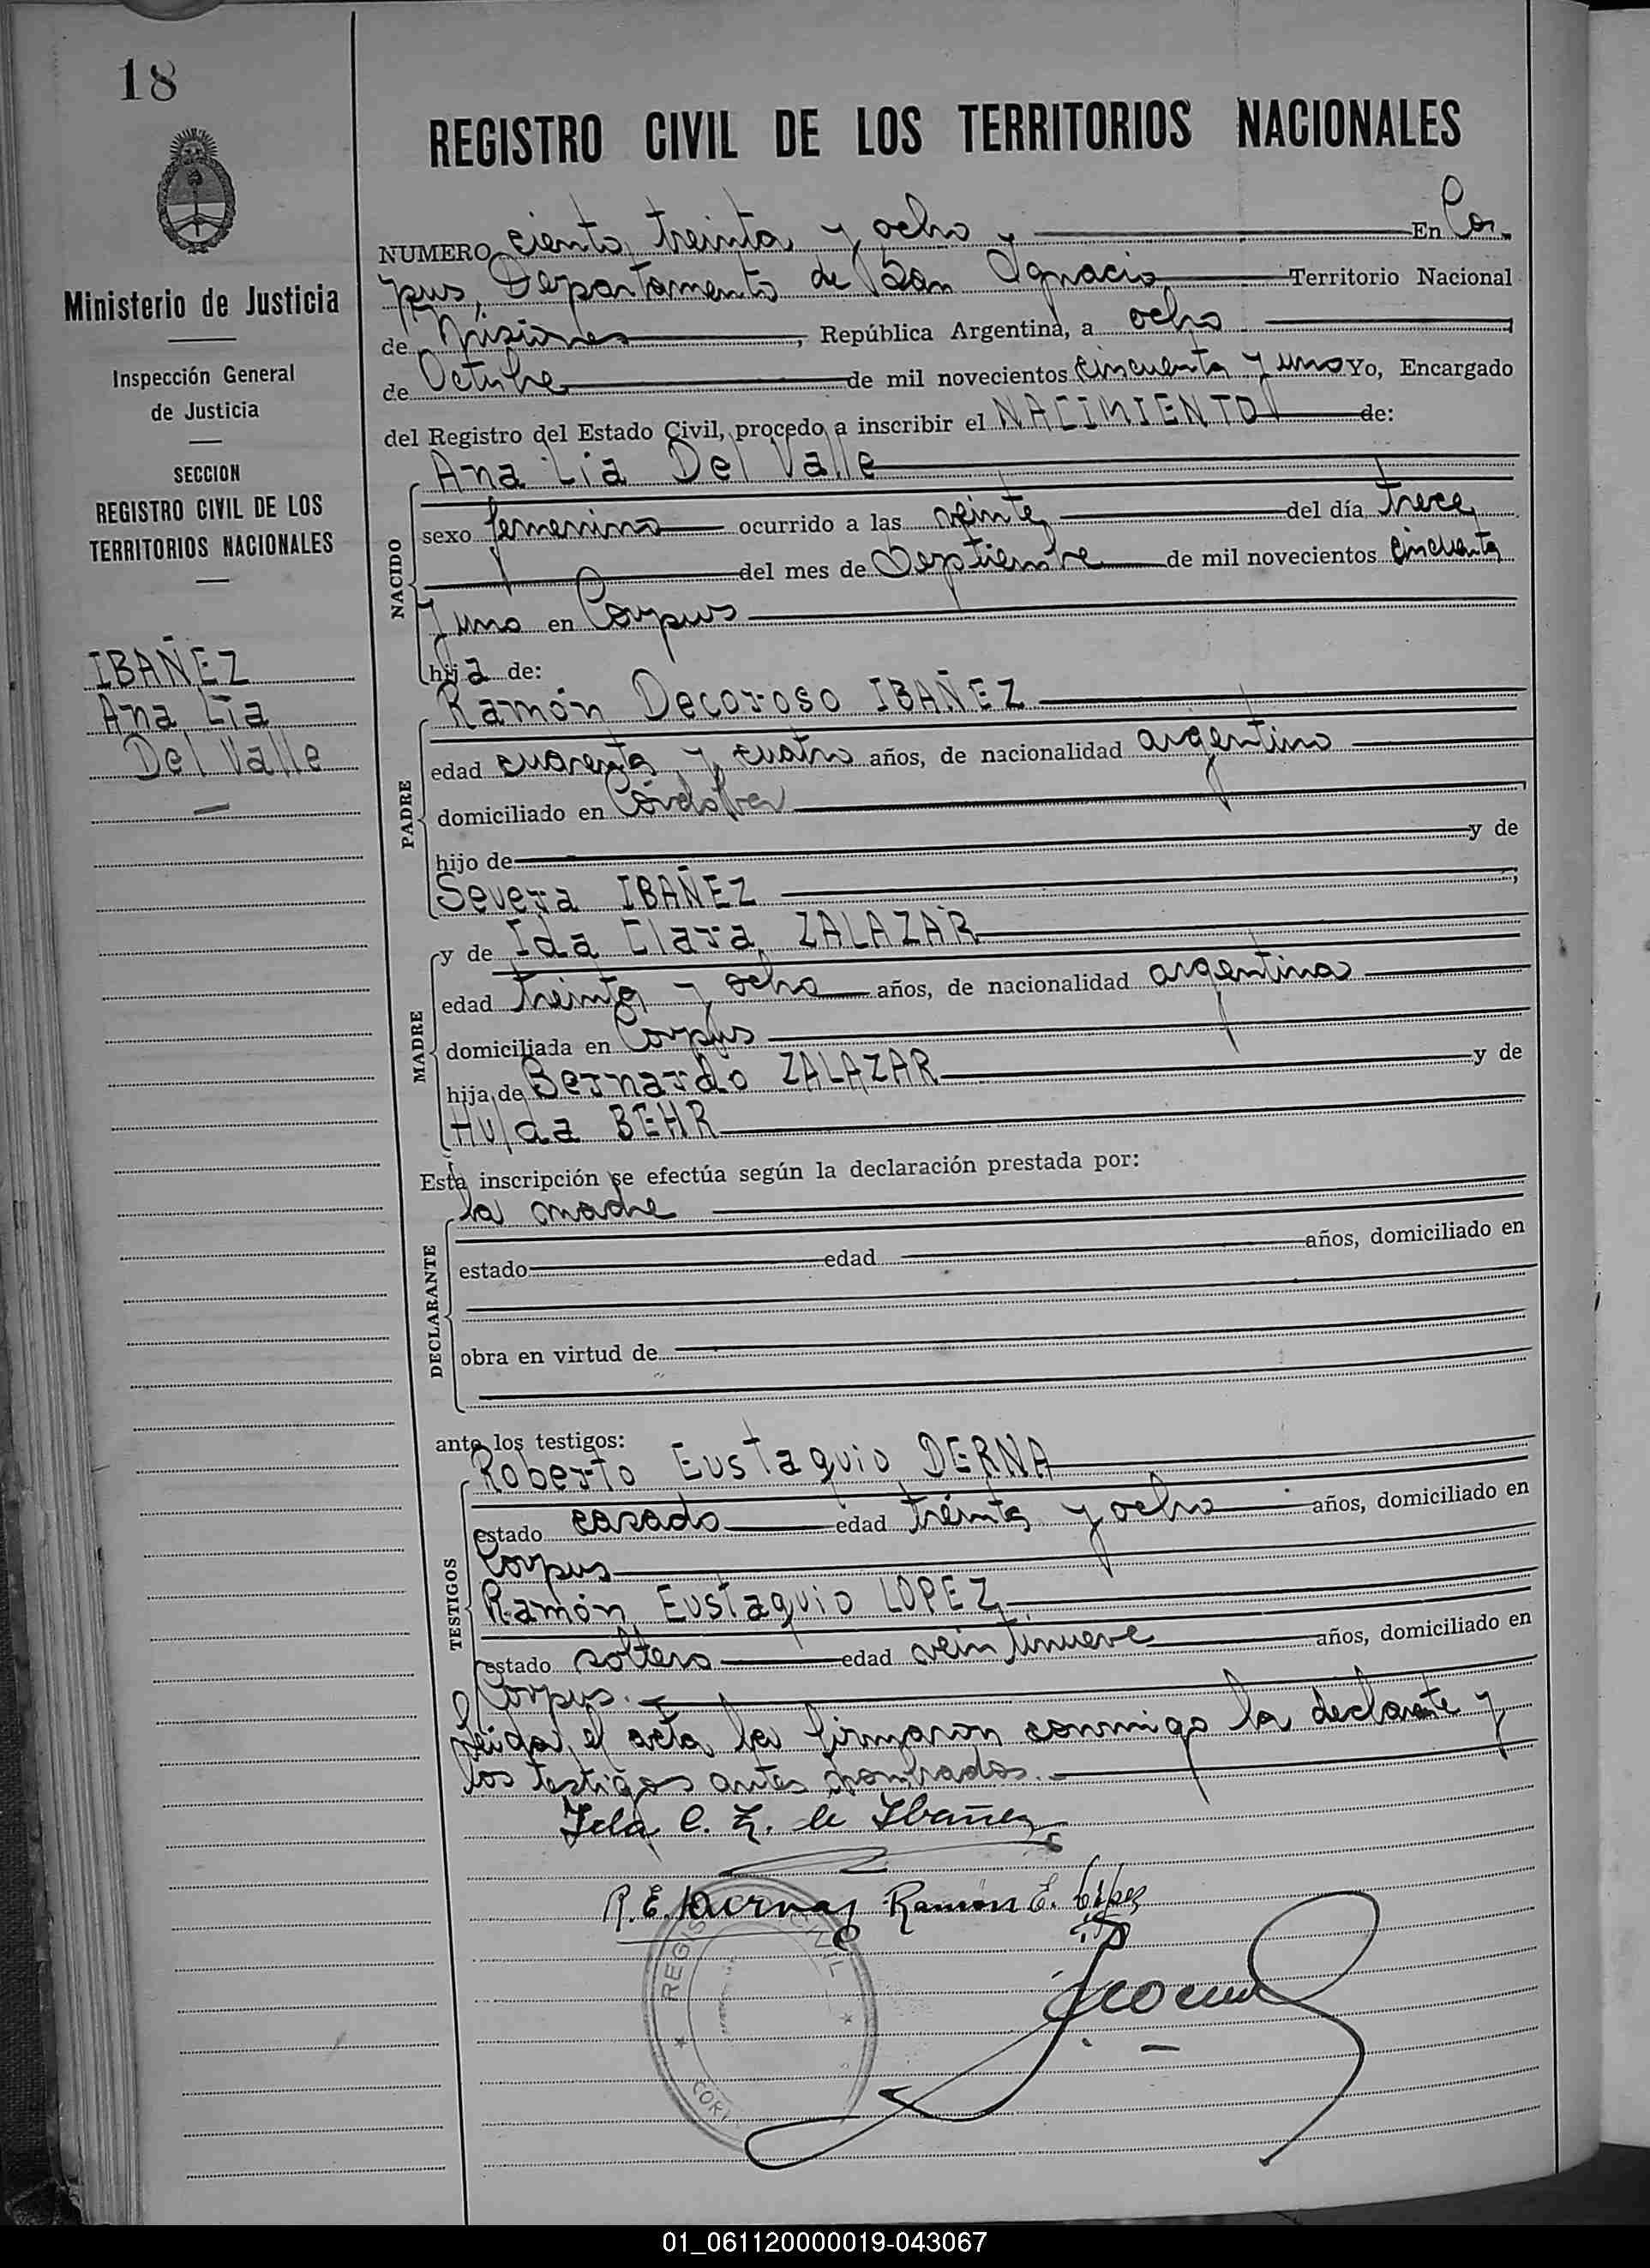 18
Ministerio de Justicia
Inspección General
de Justicia
SECCION
REGISTRO CIVIL DE LOS
TERRITORIOS NACIONALES
IBAÑEZ
Ana Lia
Del Valle
REGISTRO CIVIL DE LOS TERRITORIOS NACIONALES
NUMERO ciento treinta y ocho En Cor
pus, Departamento de San Ignacio Territorio Nacional
de Misiones, República Argentina, a ocho
de Octubre de mil novecientos cincuenta y uno Yo, Encargado
del Registro del Estado Civil, procedo a inscribir el NACIMIENTO de:
NACIDO
Ana Lia Del Valle
sexo femenino ocurrido a las veinte del día trece
del mes de Septiembre de mil novecientos cincuenta
y uno en Corpus
hija de:
PADRE
Ramón Decoroso IBAÑEZ
edad cuarenta y cuatro años, de nacionalidad argentino
domiciliado en Córdoba
hijo de y de
Severa IBAÑEZ
MADRE
y de Ida Clara ZALAZAR
edad treinta y ocho años, de nacionalidad argentina
domiciliada en Corpus
hija de Bernardo ZALAZAR y de
Hulda BEHR
Esta inscripción se efectúa según la declaración prestada por:
DECLARANTE
la madre
estado edad años, domiciliado en
obra en virtud de
ante los testigos:
TESTIGOS
Roberto Eustaquio DERNA
estado casado edad treinta y ocho años, domiciliado en
Corpus
Ramón Eustaquio LOPEZ
estado soltero edad veintinueve años, domiciliado en
Corpus.
Leída el acta la firmaron conmigo la declarante y
los testigos antes nombrados.
Ida C. Z. de Ibañez
R. E. Derna Ramón E. López
REGIS CIVIL
COR
01_061120000019-043067